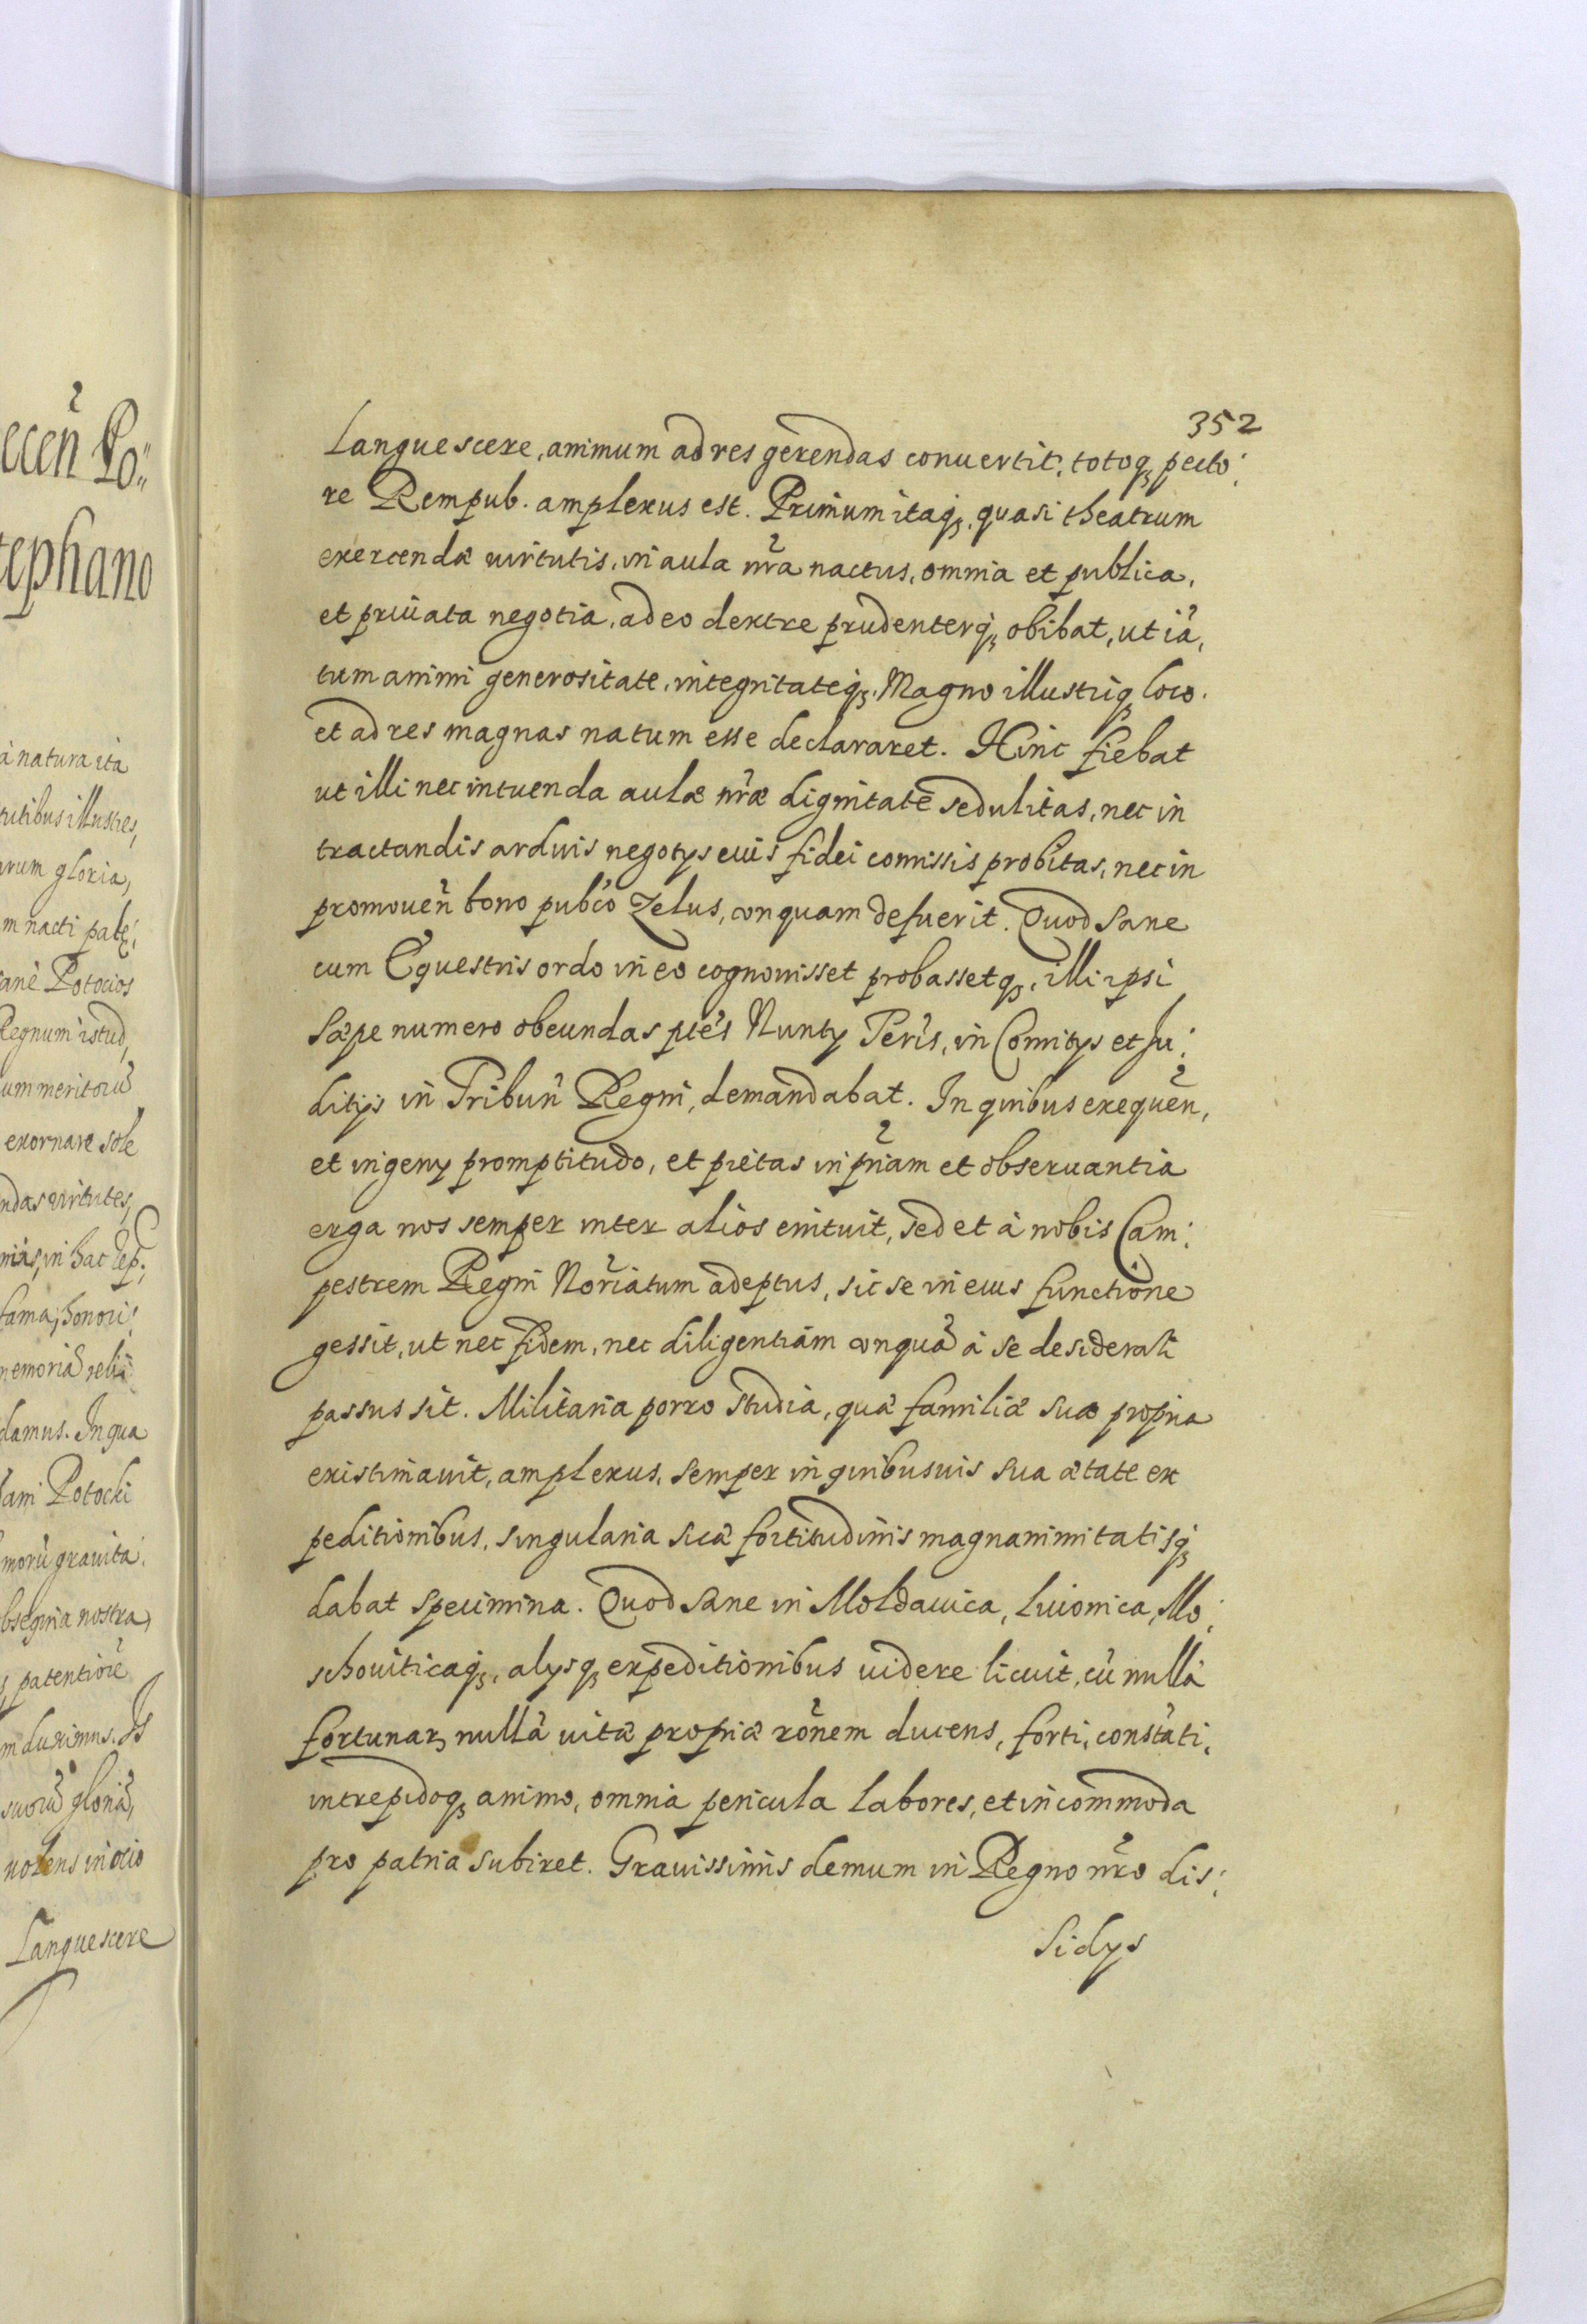 ecen̄ Po„
tephano
à natura ita
tutibus illustres,
arum gloria,
m nacti pate:
anè Potocios
Regnum istud,
um meritorū
exornare sole
ndas virtutes,
in hac Rep:
fama, honori:
memoriā reli
damus. In qua
ani Potocki
morū grauita:
bsequia nostra,
patentiorē
m duximus. Is
suorū gloriā,
nolens in otio
Languescere
352
Languescere, animum ad res gerendas conuertit, totoq; pecto:
re Rempub. amplexus est. Primum itaq;, quasi theatrum
exercendæ uirtutis, in aula nr̄a nactus, omnia et publica,
et priuata negotia, adeo dextre prudenterq; obibat, ut iā,
tum animi generositate, integritateq;, Magno illustriq; loco,
et ad res magnas natum esse declararet. Hinc fiebat
ut illi nec in tuenda aulæ nr̄æ dignitatē sedulitas, nec in
tractandis arduis negotys euis fidei comissis probitas, nec in
promouen̄ bono pub̄co Zelus, vnquam defuerit. Quod sane
cum Equestris ordo in eo cognouisset probassetq;, illi ipsi
Sæpe numero obeundas pte's Nunty Terr̄is, in Comitys et Ju:
ditys in Tribun̄ Regni, demandabat. In quibus exequen̄,
et ingeny promptitudo, et pietas in pr̄iam et obseruantia
erga nos semper inter alios enituit, sed et à nobis Cam:
pestrem Regni Nor̄iatum adeptus, sic se in eius functione
gessit, ut nec fidem, nec diligentiam vnquā à se desiderari
passus sit. Militaria porro studia, quæ familiæ suæ propria
existimauit, amplexus, semper in quibusuis sua ætate ex
peditionibus, singularia sua fortitudinis magnanimitatisq;
dabat specimina. Quod sane in Moldauica, Liuonica, Mo:
schouiticaq;, alysq; expeditionibus uidere licuit, cū nullā
fortunar, nullā uitæ propriæ rōnem ducens, forti, constāti,
intrepidoq; animo, omnia pericula labores, et incommoda
pro patria subiret. Grauissimis demum in Regno nr̄o dis:
Sidys